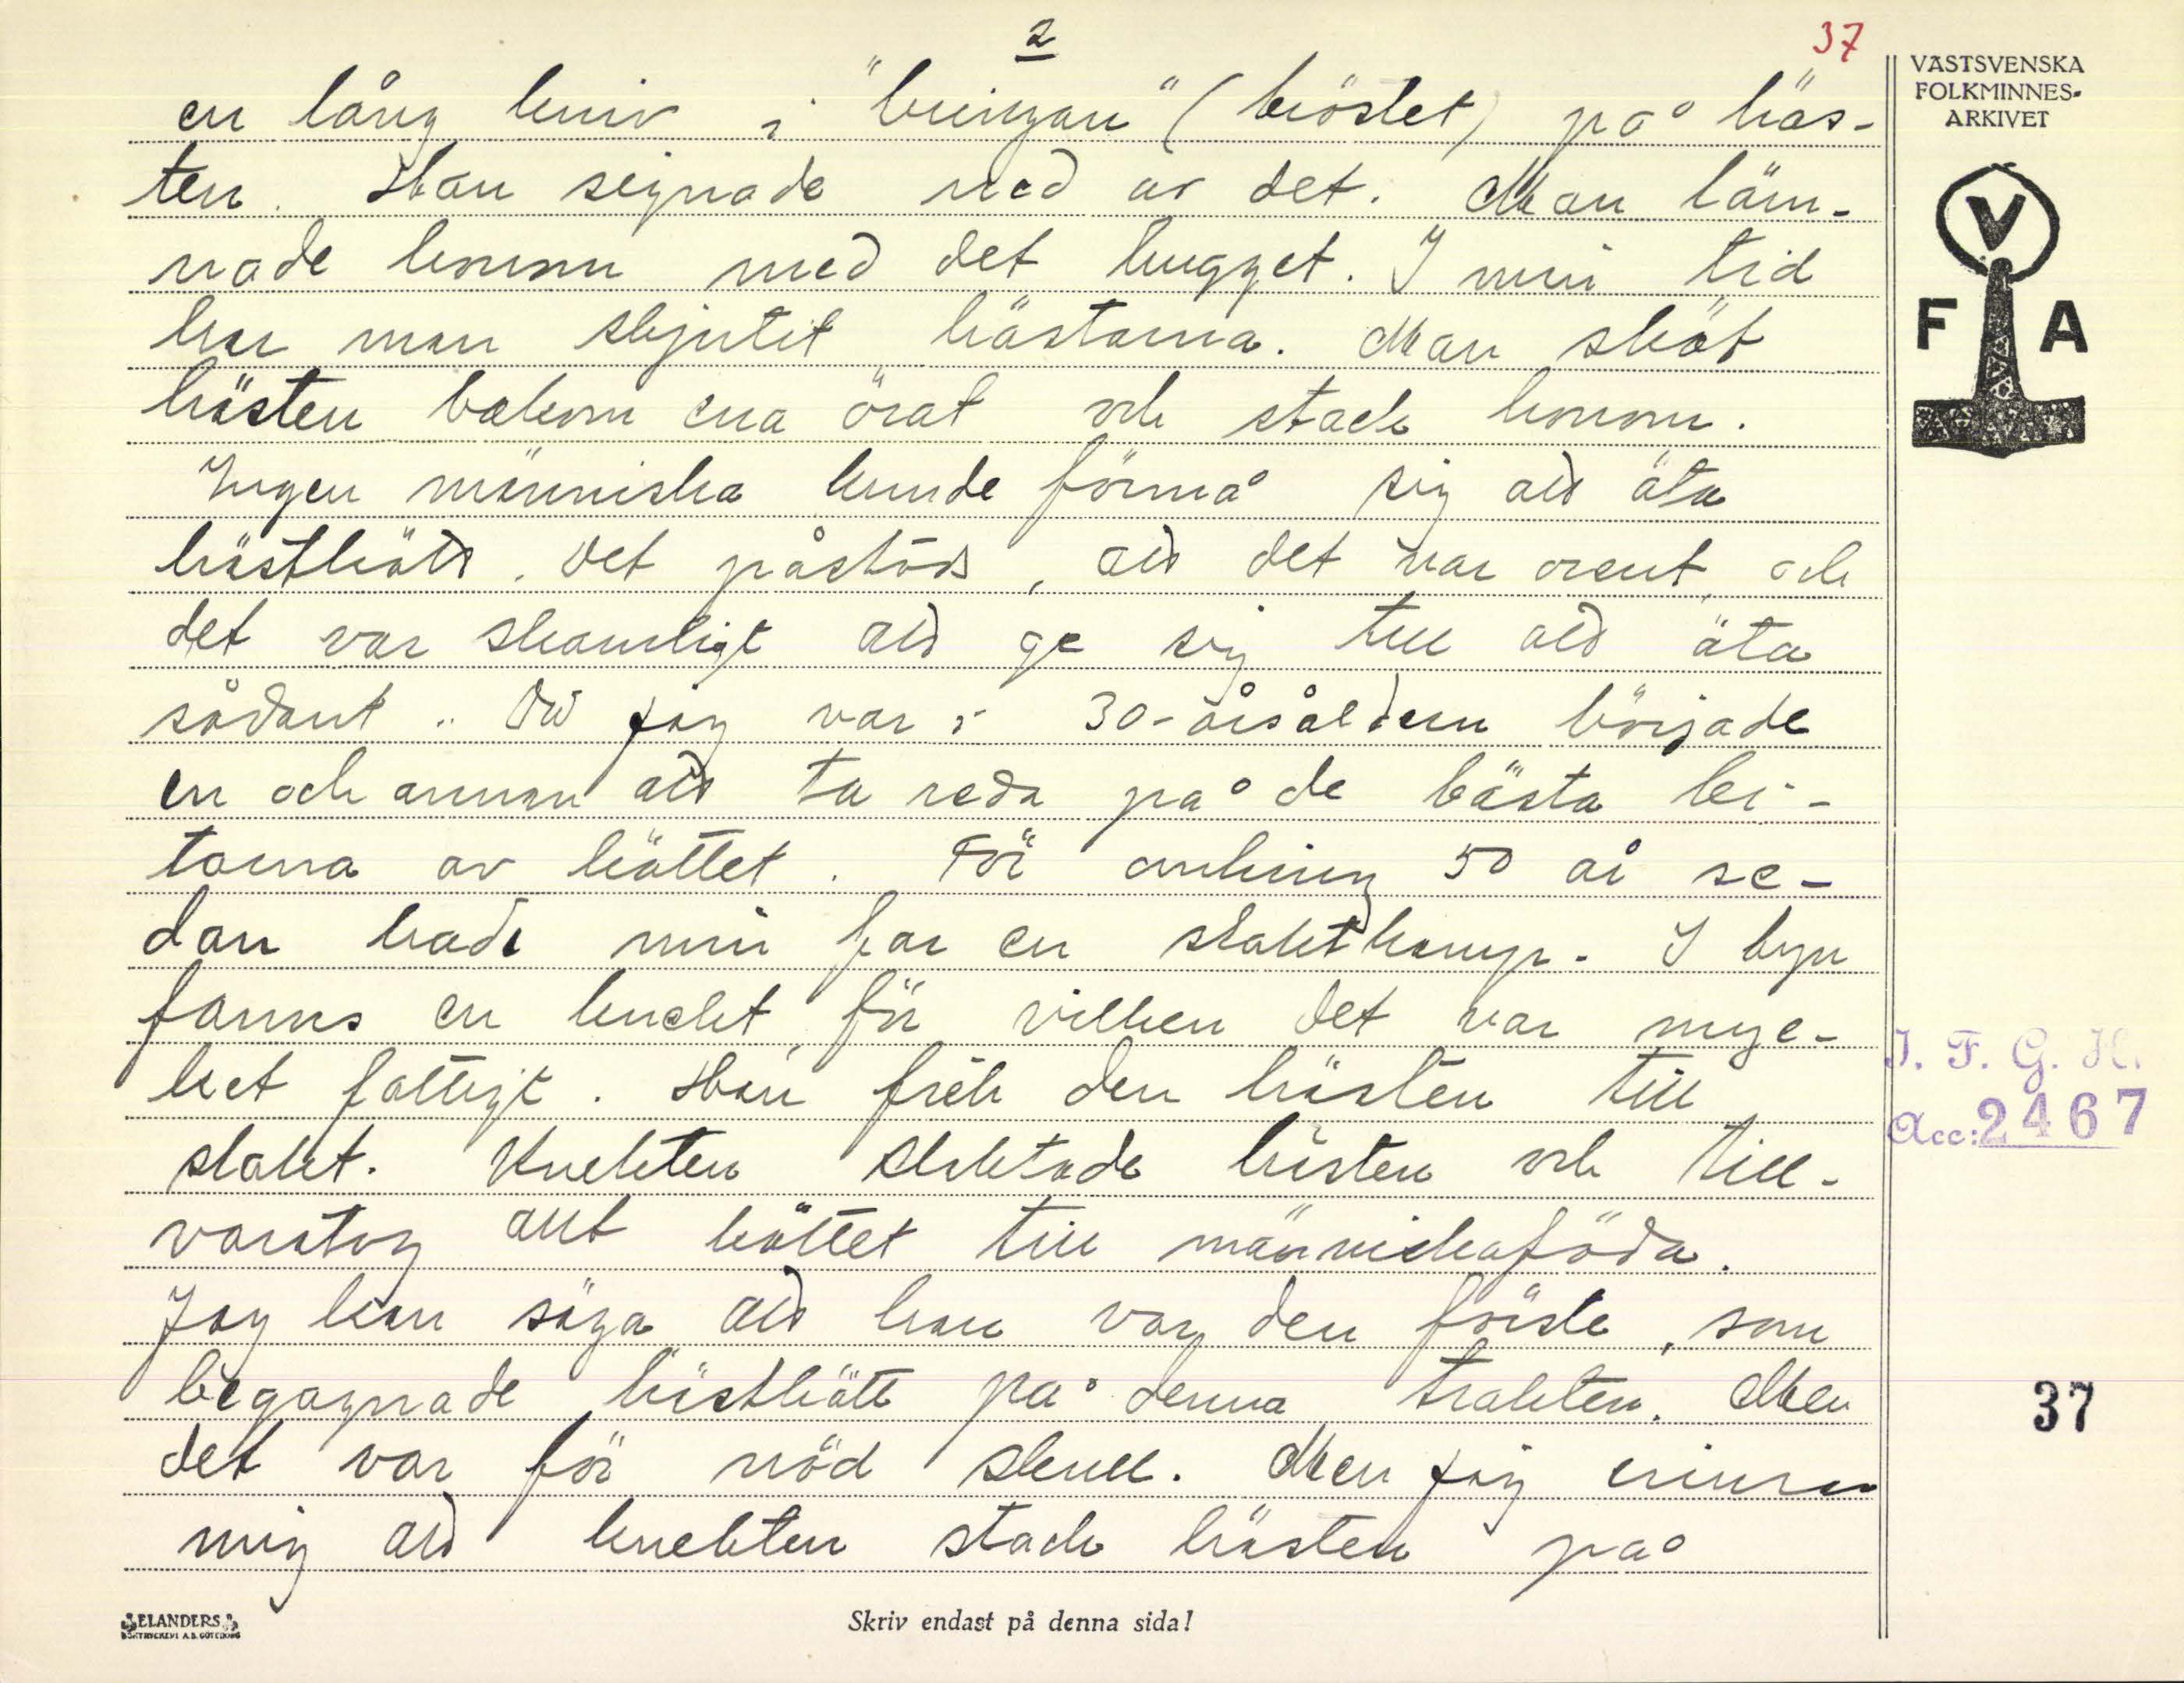 2
37
en lång kniv i "bringan" (bröstet) på häs-
ten. Han segnade ned av det. Man läm-
nade honom med det hugget. I min tid
har man skjutit hästarna. Man sköt
hästen bakom ena örat och stack honom.
Ingen människa kunde förmå sig att äta
hästkött. Det påstods, att det var orent, och
det var skamligt att ge sig till att äta
sådant. Då jag var i 30-årsåldern började
en och annan att ta reda på de bästa bi-
tarna av köttet. För omkring 50 år se-
dan hade min far en slaktkamp. I byn
fanns en knekt, för vilken det var myc-
ket fattigt. Han fick den hästen till
slakt. Knekten slaktade hästen och till-
varatog allt köttet till människoföda.
Jag kan säga att han var den förste, som
begagnade hästkött på denna trakten. Men
det var för nöd skull. Men jag erinrar
mig att knekten stack hästen på
VÄSTSVENSKA
FOLKMINNES-
ARKIVET
V
F A
I. F. G. H.
Acc: 2467
37
ELANDERS
BOKTRYCKERI A.B. GÖTEBORG
Skriv endast på denna sida!